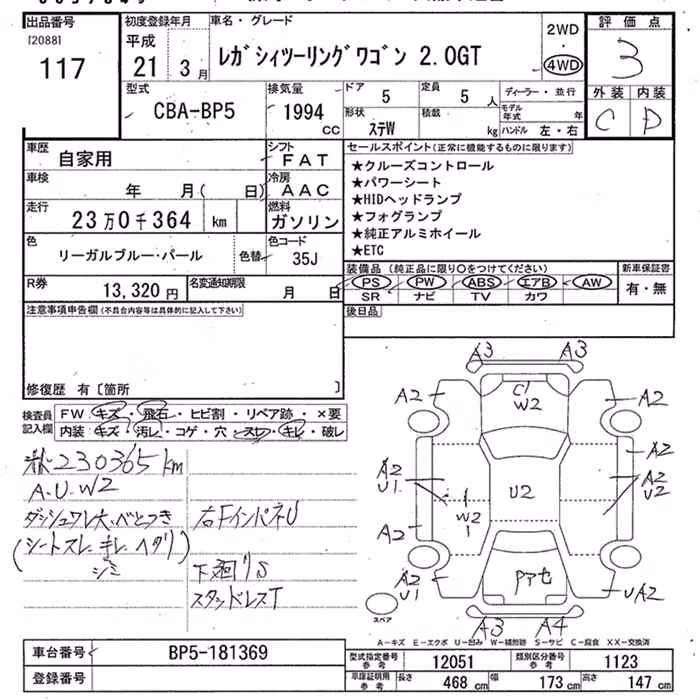 出品番号
[2088]
117
初度登録年月
平成
21 3月
車名・グレード
レガシィツーリングワゴン 2.0GT
2WD
・
4WD
評価点
3
外装 内装
C D
型式
CBA-BP5
排気量
1994
CC
ドア
5
定員
5 人
形状
ステW
積載
kg
ディーラー・並行
モデル年式 年
ハンドル 左・右
車歴
自家用
シフト
FAT
車検
年 月( 日)
冷房
AAC
走行
23万0千364 km
燃料
ガソリン
色
リーガルブルー・パール
色替
色コード
35J
R券
13,320円
名変通知期限
月 日
セールスポイント(正常に機能するものに限ります)
★クルーズコントロール
★パワーシート
★HIDヘッドランプ
★フォグランプ
★純正アルミホイール
★ETC
装備品 (純正品に限り○をつけてください)
新車保証書
PS PW ABS エアB AW
SR ナビ TV カワ
有・無
注意事項申告欄(不具合内容等は具体的に記入して下さい)
後日品
修復歴 有〔箇所 〕
検査員記入欄
FW キズ・飛石・ヒビ割・リペア跡・×要
内装 キズ・汚レ・コゲ・穴・スレ・キレ・破レ
230365km
A.U.W2
ダッシュワレ大、べとつき
(シートスレ、キレ、ヘタリ)
シミ
右FインパネU
下廻りS
スタッドレスT
A3 A3
A2 C1 A2
W2
A2
A2 A2
U1 U2 U2
W2
A2
A2 Pアセ
U1 UA2
A3 A4
スペア
A-キズ E-エクボ U-凹み W-補修跡 S-サビ C-腐食 XX-交換済
車台番号
BP5-181369
登録番号
型式指定番号
参考
12051
類別区分番号
参考
1123
車庫証明用
参考
長さ 468 cm 幅 173 cm 高さ 147 cm